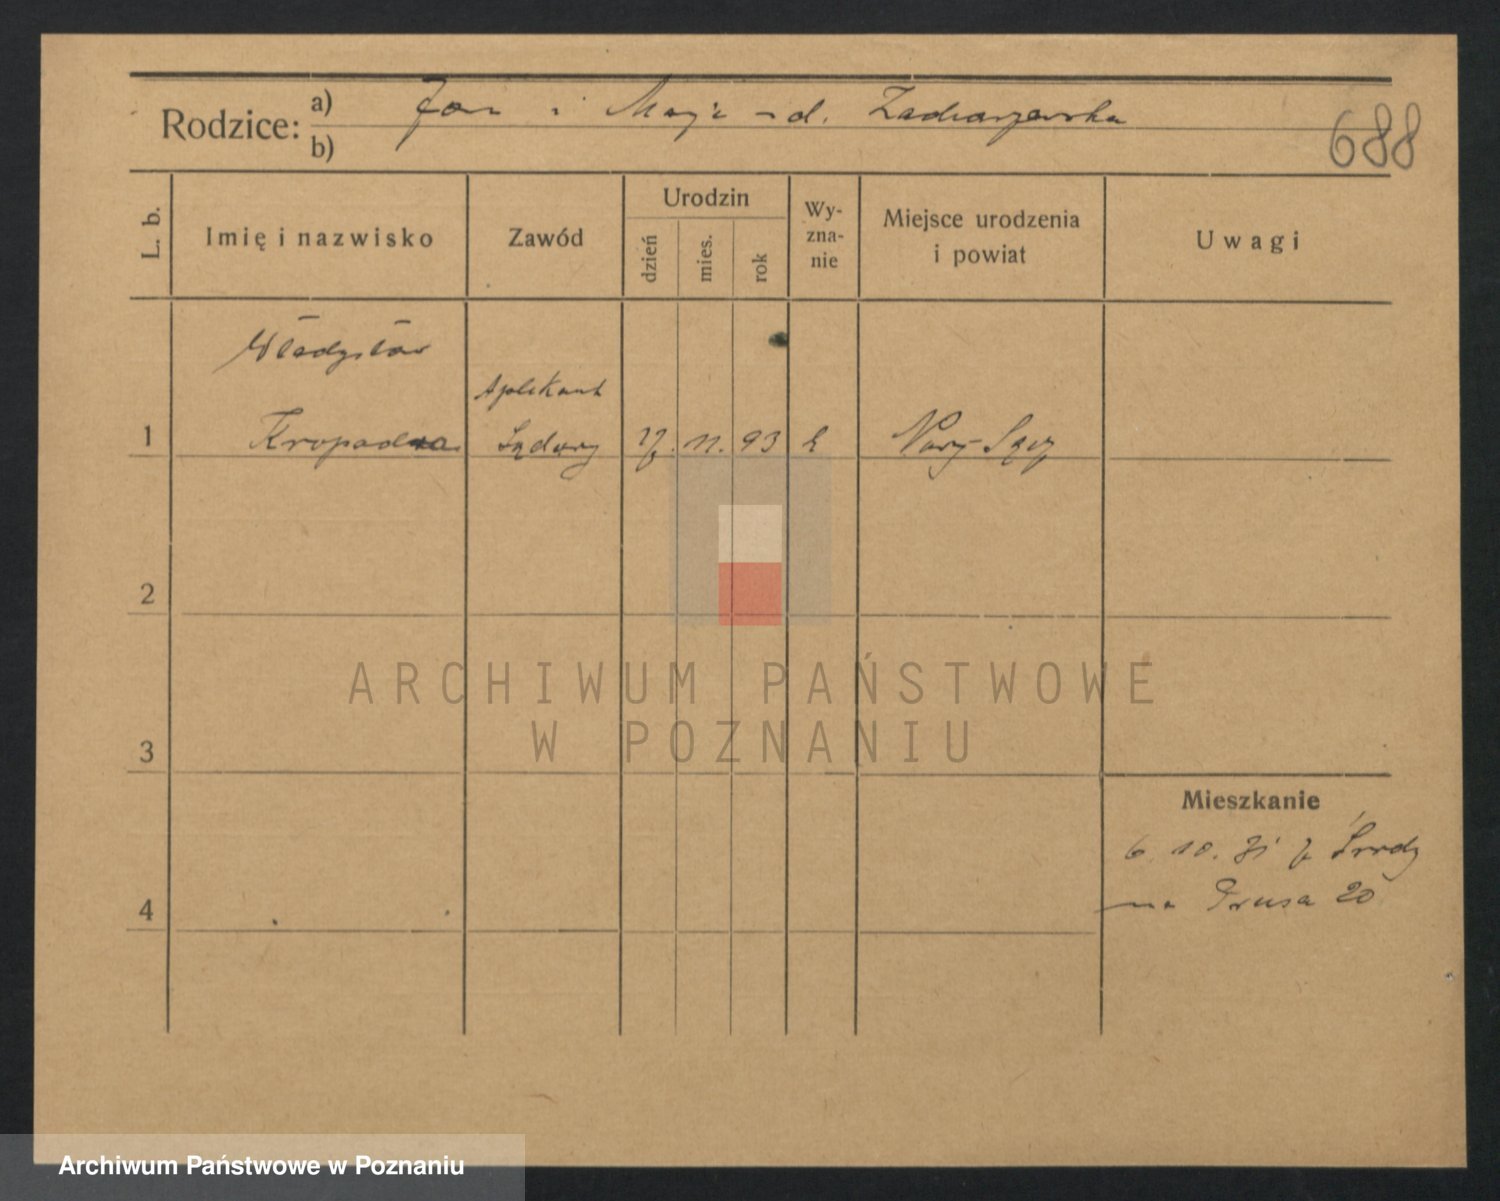 Rodzice: a) Jan i Marja z d. Zacharzewska
b)
688
L. b.
Imię i nazwisko
Zawód
Urodzin
dzień
mies.
rok
Wy-
zna-
nie
Miejsce urodzenia
i powiat
Uwagi
Władysław
Aplikant
1 Sądowy 27. 11. 93 Nowy-Sącz
2
3
4
ARCHIWUM PAŃSTWOWE
W POZNANIU
Mieszkanie
6. 10. 31 z Środy
na Prusa 20
Archiwum Państwowe w Poznaniu